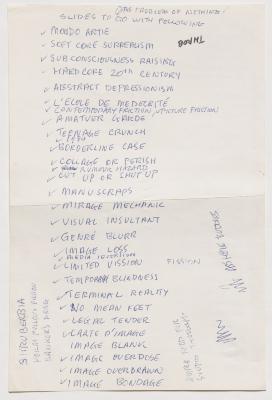 (THE PROBLEM OF NOTHING)
SLIDES TO GO WITH FOLLOWING
MONDO ARTIE
SOFT CORE SURREALISM
SUBCONSCIOUSNESS RAISING
HARDCORE 20TH CENTURY
ABSTRACT DEPRESSIONISM
L'ECOLE DE MEDECRITE
CONTEMPORARY FRICTION/PICTURE FRICTION
AMATUER GRADE
TEENAGE CRUNCH
BORDERLINE CASE
COLLAGE OR PERISH
RUMOUR HAZARD
CUT UP OR SHUT UP
MANUSCRAPS
MIRAGE MECHANIC
VISUAL INSULTANT
GENRÉ BLURR
IMAGE LOSS
MEDIA INVERSION
LIMITED VISSION FISSION
TEMPORARY BLINDNESS
TERMINAL REALITY
NO MEAN FEET
LEGAL TENDER
CARTE D'IMAGE
IMAGE BLANK
IMAGE OVERDOSE
IMAGE OVERDRAWN
IMAGE BONDAGE